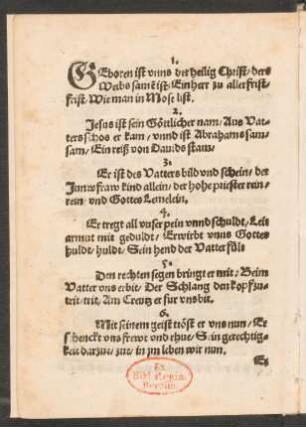 1.
GEboren ist vnns der heilig Christ / ders
Weibs samē ist / Ein herr zu aller frist /
frist Wie man in Mose list.
2.
Jesus ist sein Göttlicher nam / Aus Vat-
ters schos er kam / vnnd ist Abrahams sam-
sam / Ein reiß von Dauids stam /
3.
Er ist des Vatters bild vnd schein / der
Junckfraw kind allein / der hohe priester rein-
rein vnd Gottes Lemelein.
4.
Er tregt all vnser pein vnnd schuldt / Leit
armut mit geduldt / Erwirbt vnns Gottes
huldt / huldt / Sein hend der Vatter fült
5.
Den rechten segen bringt er mit / Beim
Vatter vns erbit / Der Schlang den kopff zu-
trit / trit / Am Creutz er für vns bit.
6.
Mit seinem geist tröst er vns nun / Er
schenckt vns frewd vnd rhue / Sein gerechtig-
keit darzue / zue / in jm leben wir nun.
Er
Ex
Bibl. Regia
Berolin.